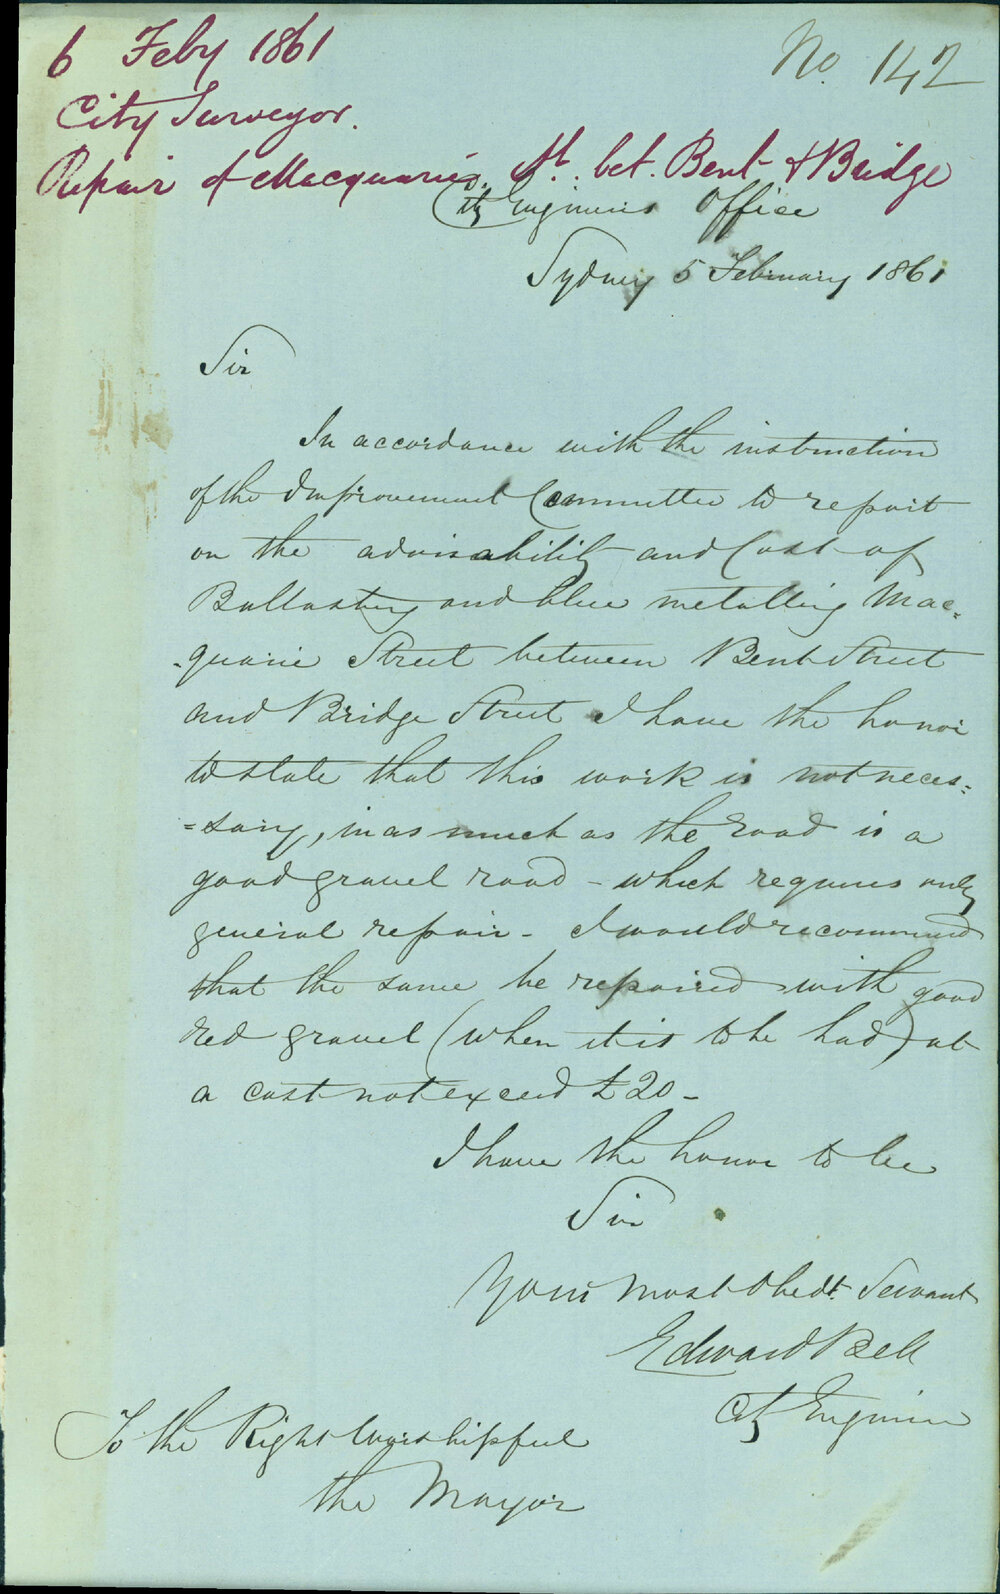 6 Feby 1861
No. 142
City Surveyor.
Repair of Macquarie St. bet. Bent & Bridge
City Engineers Office
Sydney 5 February 1861
Sir
In accordance with the instruction
of the Improvement Committee to report
on the advisability and Cost of
Ballasting and blue metalling Mac=
-quarie Street between Bent Street
and Bridge Street I have the honor
to state that this work is not neces=
=sary, in as much as the road is a
good gravel road - which requires only
general repair - I would recommend
that the same be repaired with good
red gravel (when it is to be had) at
a cost not exceed £20 -
I have the honor to be
Sir
Your most Obedt. Servant
Edward Bell
City Engineer
To the Right Worshipful
the Mayor